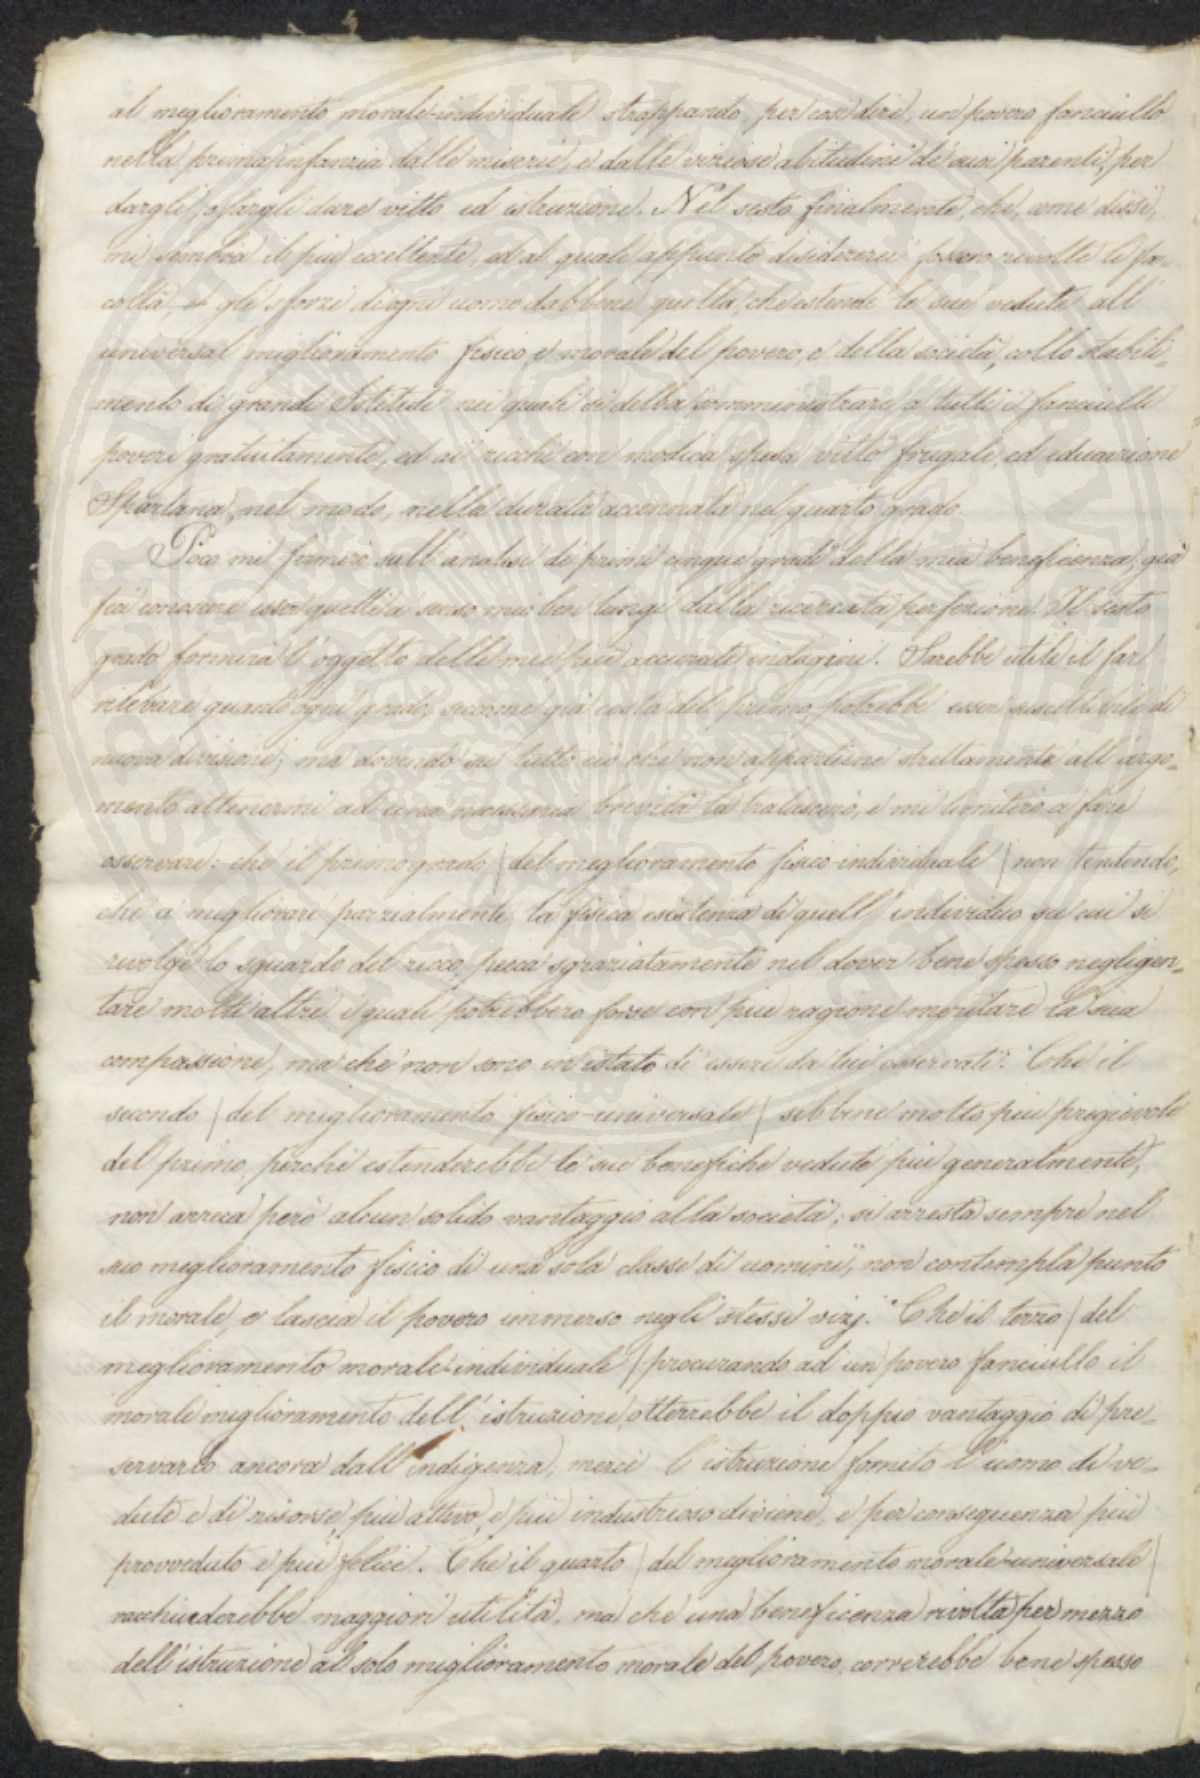 al miglioramento morale-individuale strappando, per così dire, un povero fanciullo
nella prima infanzia dalle miserie, e dalle viziose abitudini de' suoi parenti, per
dargli, o fargli dare vitto ed istruzione. Nel sesto finalmente, che, come dissi,
mi sembra il più eccellente, ed al quale appunto desidererei fossero rivolte le fa-
coltà, e gli sforzi di ogni uomo dabbene quella, che estende le sue vedute all'
universal miglioramento fisico, e morale del povero, e della società, collo stabili-
mento di grandi Istituti nei quali si debba somministrare a tutti i fanciulli
poveri gratuitamente, ed ai ricchi con modica spesa vitto frugale, ed educazione
Spartana, nel modo, nella durata accennata nel quarto grado.
Poco mi fermerò sull'analisi de' primi cinque gradi della mia beneficenza, già
feci conoscere esser quelli a senso mio ben lungi dalla ricercata perfezione. Il sesto
grado formerà l'oggetto delle mie più accurate indagini. Sarebbe utile il far
rilevare quanto ogni grado, siccome già costa del primo, potrebbe esser suscettibile di
nuova divisione; ma dovendo in tutto ciò che non appartiene strettamente all'argo-
mento attenermi ad una necessaria brevità la tralascerò, e mi limiterò a fare
osservare: che il primo grado (del miglioramento fisico-individuale) non tendendo,
che a migliorare parzialmente la fisica esistenza di quell'individuo su cui si
rivolge lo sguardo del ricco, pecca sgraziatamente nel dover bene spesso negligen-
tare molti altri i quali potrebbero forse con più ragione meritare la sua
compassione, ma che non sono in istato di essere da lui osservati: Che il
secondo (del miglioramento fisico-universale) sebbene molto più pregievole
del primo, perchè estenderebbe le sue benefiche vedute più generalmente,
non arreca però alcun solido vantaggio alla società; si arresta sempre nel
suo miglioramento fisico di una sola classe di uomini, non contempla punto
il morale, e lascia il povero immerso negli stessi vizj. Che il terzo (del
miglioramento morale-individuale) procurando ad un povero fanciullo il
morale miglioramento dell'istruzione, otterrebbe il doppio vantaggio di pre-
servarlo ancora dall'indigenza, mercè l'istruzione fornito l'uomo di ve-
dute e di risorse, più attivo, e più industrioso diviene, e per conseguenza più
provveduto e più felice. Che il quarto (del miglioramento morale-universale)
racchiuderebbe maggiori utilità, ma che una beneficenza rivolta per mezzo
dell'istruzione al solo miglioramento morale del povero, correrebbe bene spesso